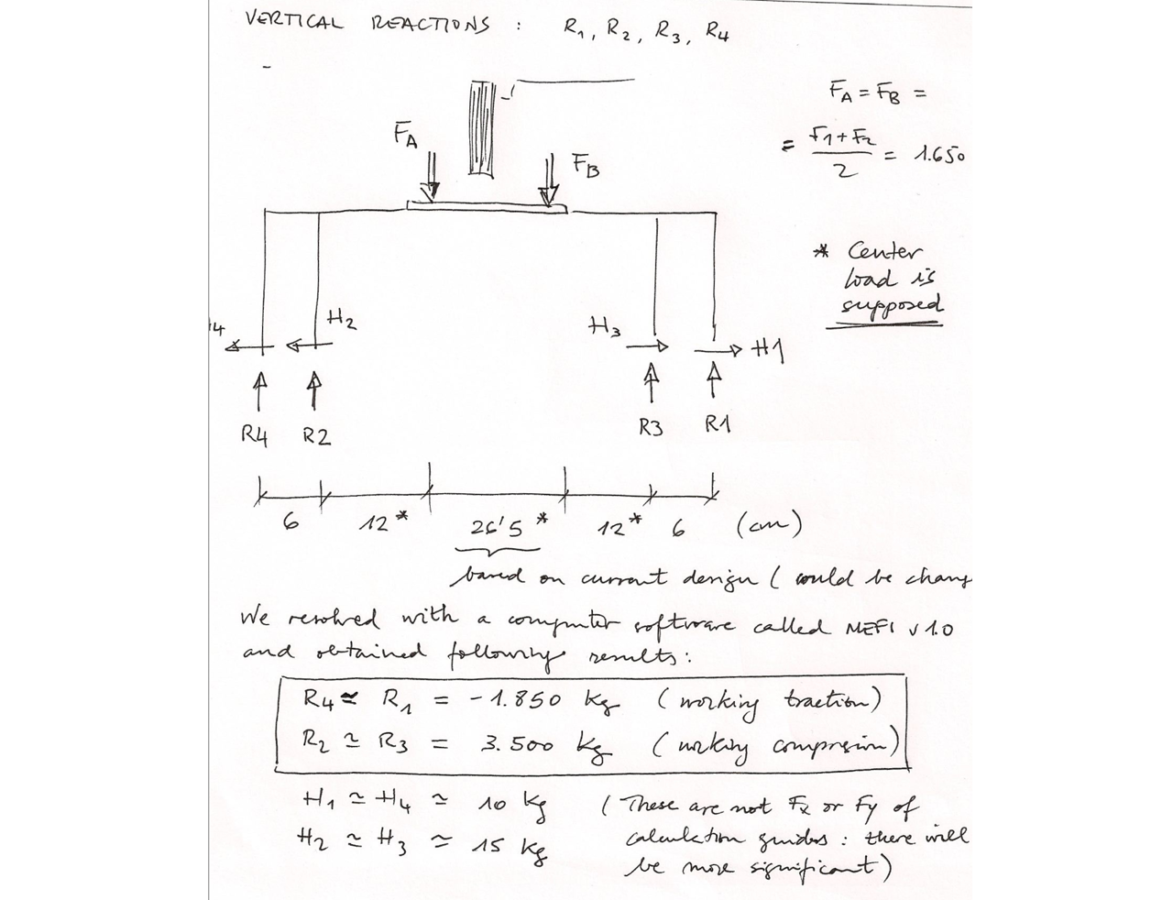 VERTICAL REACTIONS : R1, R2, R3, R4
FA = FB =
= F1+F2 / 2 = 1.650
FA
FB
* Center
load is
supposed
H2
H3
H1
R4 R2 R3 R1
6 12* 26'5* 12* 6 (cm)
based on current design ( could be chang
We resolved with a computer software called MEFI v 1.0
and obtained following results:
R4 ≃ R1 = -1.850 kg (working traction)
R2 ≃ R3 = 3.500 kg (working compresion)
H1 ≃ H4 ≃ 10 kg (These are not Fx or Fy of
H2 ≃ H3 ≃ 15 kg calculation guides : there will
be more significant)